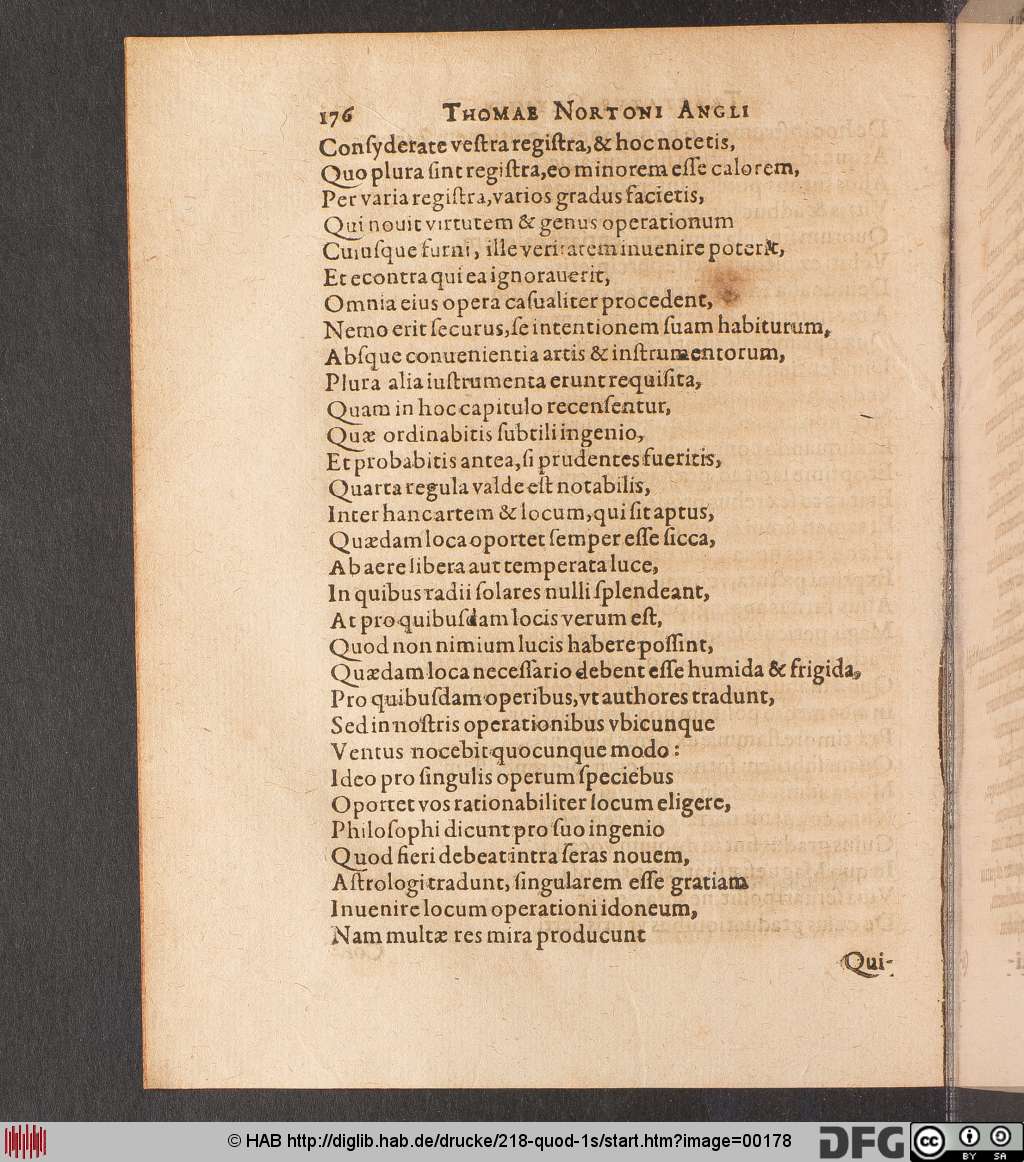 176 THOMAE NORTONI ANGLI
Conſyderate veſtra regiſtra, & hoc notetis,
Quo plura ſint regiſtra, eo minorem eſſe calorem,
Per varia regiſtra, varios gradus facietis,
Qui nouit virtutem & genus operationum
Cuiuſque furni, ille veritatem inuenire poterit,
Et econtra qui ea ignorauerit,
Omnia eius opera caſualiter procedent,
Nemo erit ſecurus, ſe intentionem ſuam habiturum,
Abſque conuenientia artis & inſtrumentorum,
Plura alia iuſtrumenta erunt requiſita,
Quam in hoc capitulo recenſentur,
Quæ ordinabitis ſubtili ingenio,
Et probabitis antea, ſi prudentes fueritis,
Quarta regula valde eſt notabilis,
Inter hanc artem & locum, qui ſit aptus,
Quædam loca oportet ſemper eſſe ſicca,
Ab aere libera aut temperata luce,
In quibus radii ſolares nulli ſplendeant,
At pro quibuſdam locis verum eſt,
Quod non nimium lucis habere poſſint,
Quædam loca neceſſario debent eſſe humida & frigida,
Pro quibuſdam operibus, vt authores tradunt,
Sed in noſtris operationibus vbicunque
Ventus nocebit quocunque modo:
Ideo pro ſingulis operum ſpeciebus
Oportet vos rationabiliter locum eligere,
Philoſophi dicunt pro ſuo ingenio
Quod fieri debeat intra ſeras nouem,
Aſtrologi tradunt, ſingularem eſſe gratiam
Inuenire locum operationi idoneum,
Nam multæ res mira producunt
Qui-
© HAB http://diglib.hab.de/drucke/218-quod-1s/start.htm?image=00178 DFG cc BY SA